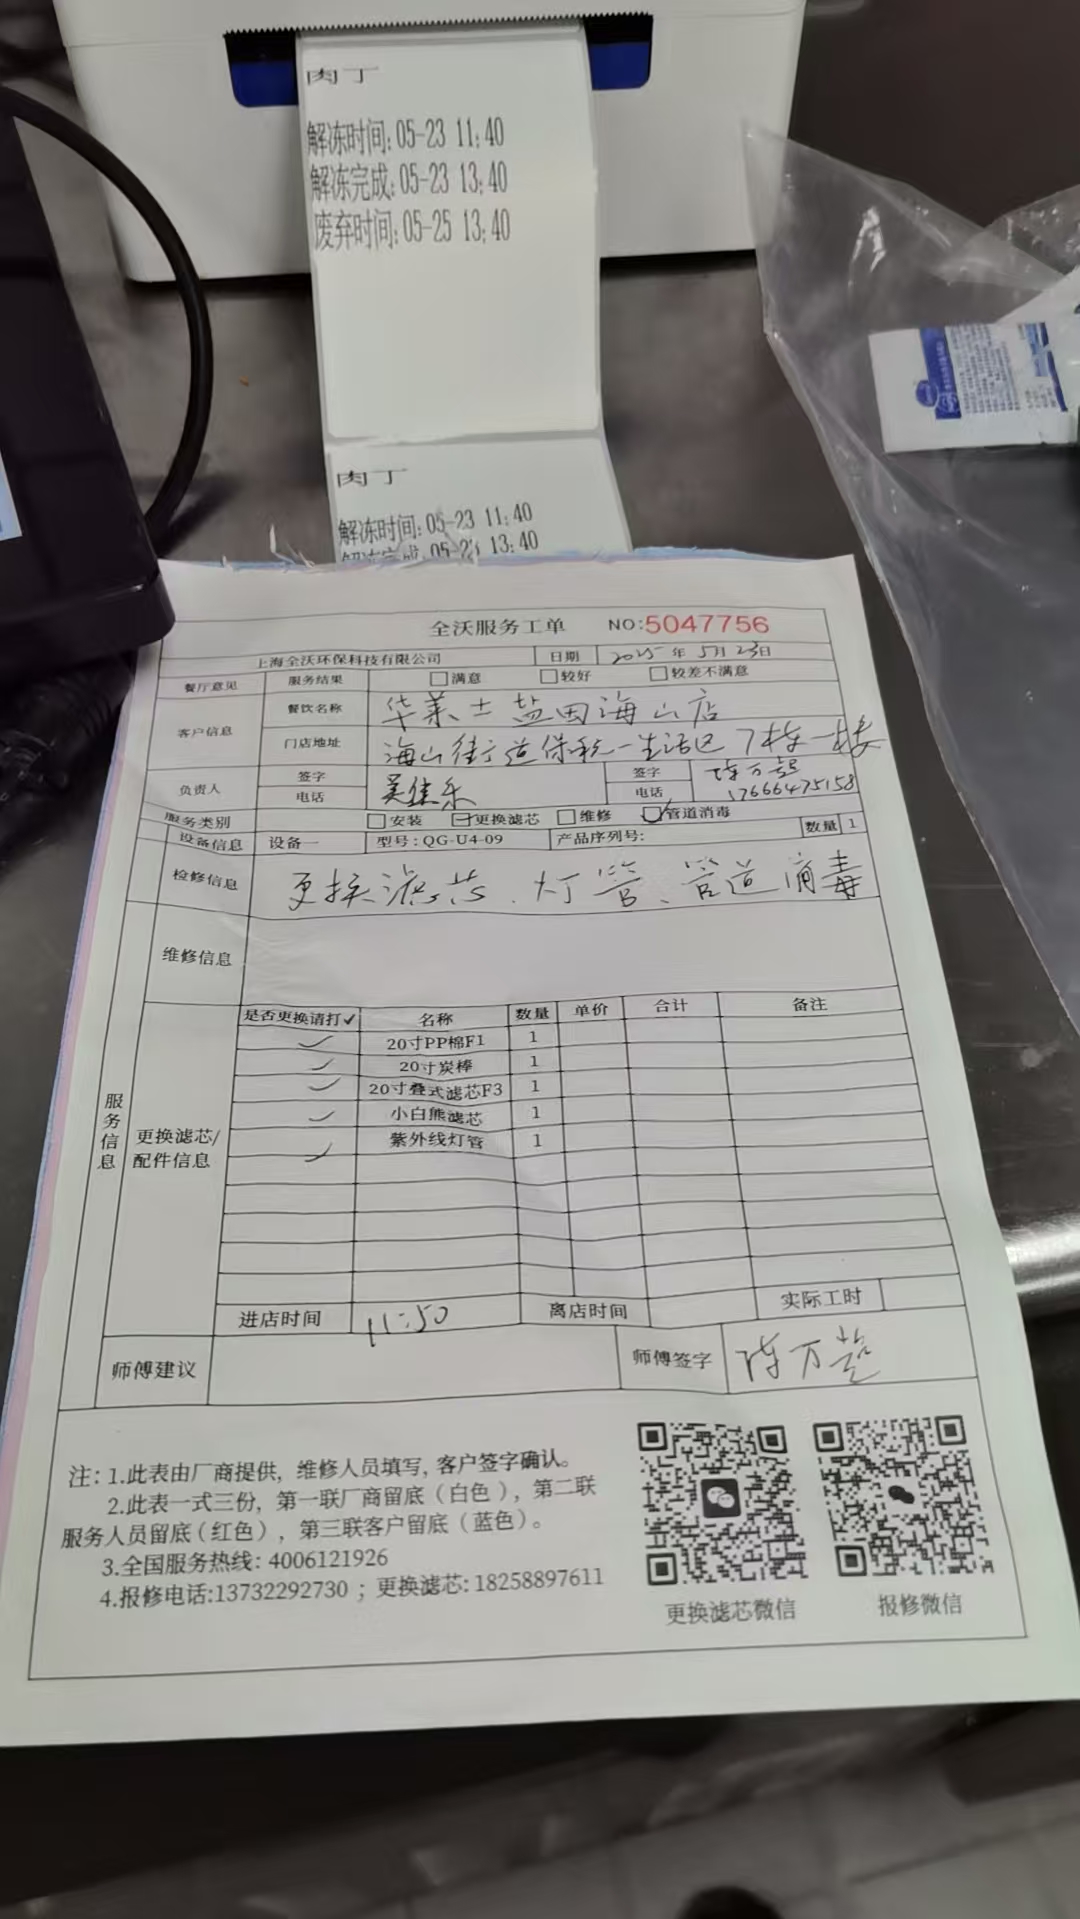 肉丁
解冻时间:05-23 11:40
解冻完成:05-23 13:40
废弃时间:05-25 13:40
肉丁
解冻时间:05-23 11:40
解冻完成:05-23 13:40
全沃服务工单 NO:5047756
上海全沃环保科技有限公司 日期 2025年5月23日
餐厅意见 服务结果 满意 较好 较差不满意
客户信息 餐饮名称 华莱士盐田海山店
门店地址 海山街道保税一生活区7栋一楼
负责人 签字 吴佳乐 签字 陈万
电话 电话 17666475158
服务类别 安装 更换滤芯 维修 管道消毒
设备信息 设备一 型号:QG-U4-09 产品序列号: 数量 1
检修信息 更换滤芯、灯管、管道消毒
维修信息
服务信息
更换滤芯/配件信息
是否更换请打✓ 名称 数量 单价 合计 备注
✓ 20寸PP棉F1 1
✓ 20寸炭棒 1
✓ 20寸叠式滤芯F3 1
✓ 小白熊滤芯 1
✓ 紫外线灯管 1
进店时间 11:50 离店时间 实际工时
师傅建议 师傅签字 陈万
注:1.此表由厂商提供,维修人员填写,客户签字确认。
2.此表一式三份,第一联厂商留底(白色),第二联
服务人员留底(红色),第三联客户留底(蓝色)。
3.全国服务热线:4006121926
4.报修电话:13732292730;更换滤芯:18258897611
更换滤芯微信 报修微信